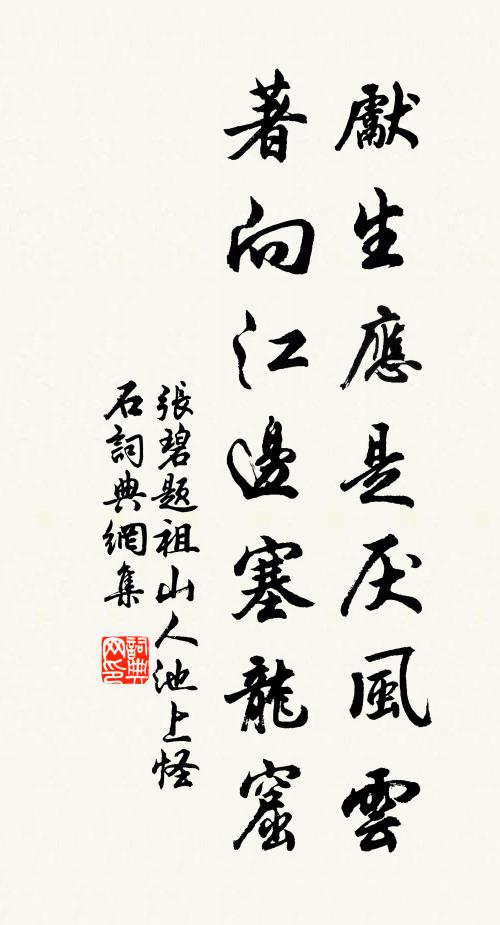 獻生應是厌風雲
著向江邊塞龍窟
張碧題祖山人池上怪
石詞典網集
詞典
网印